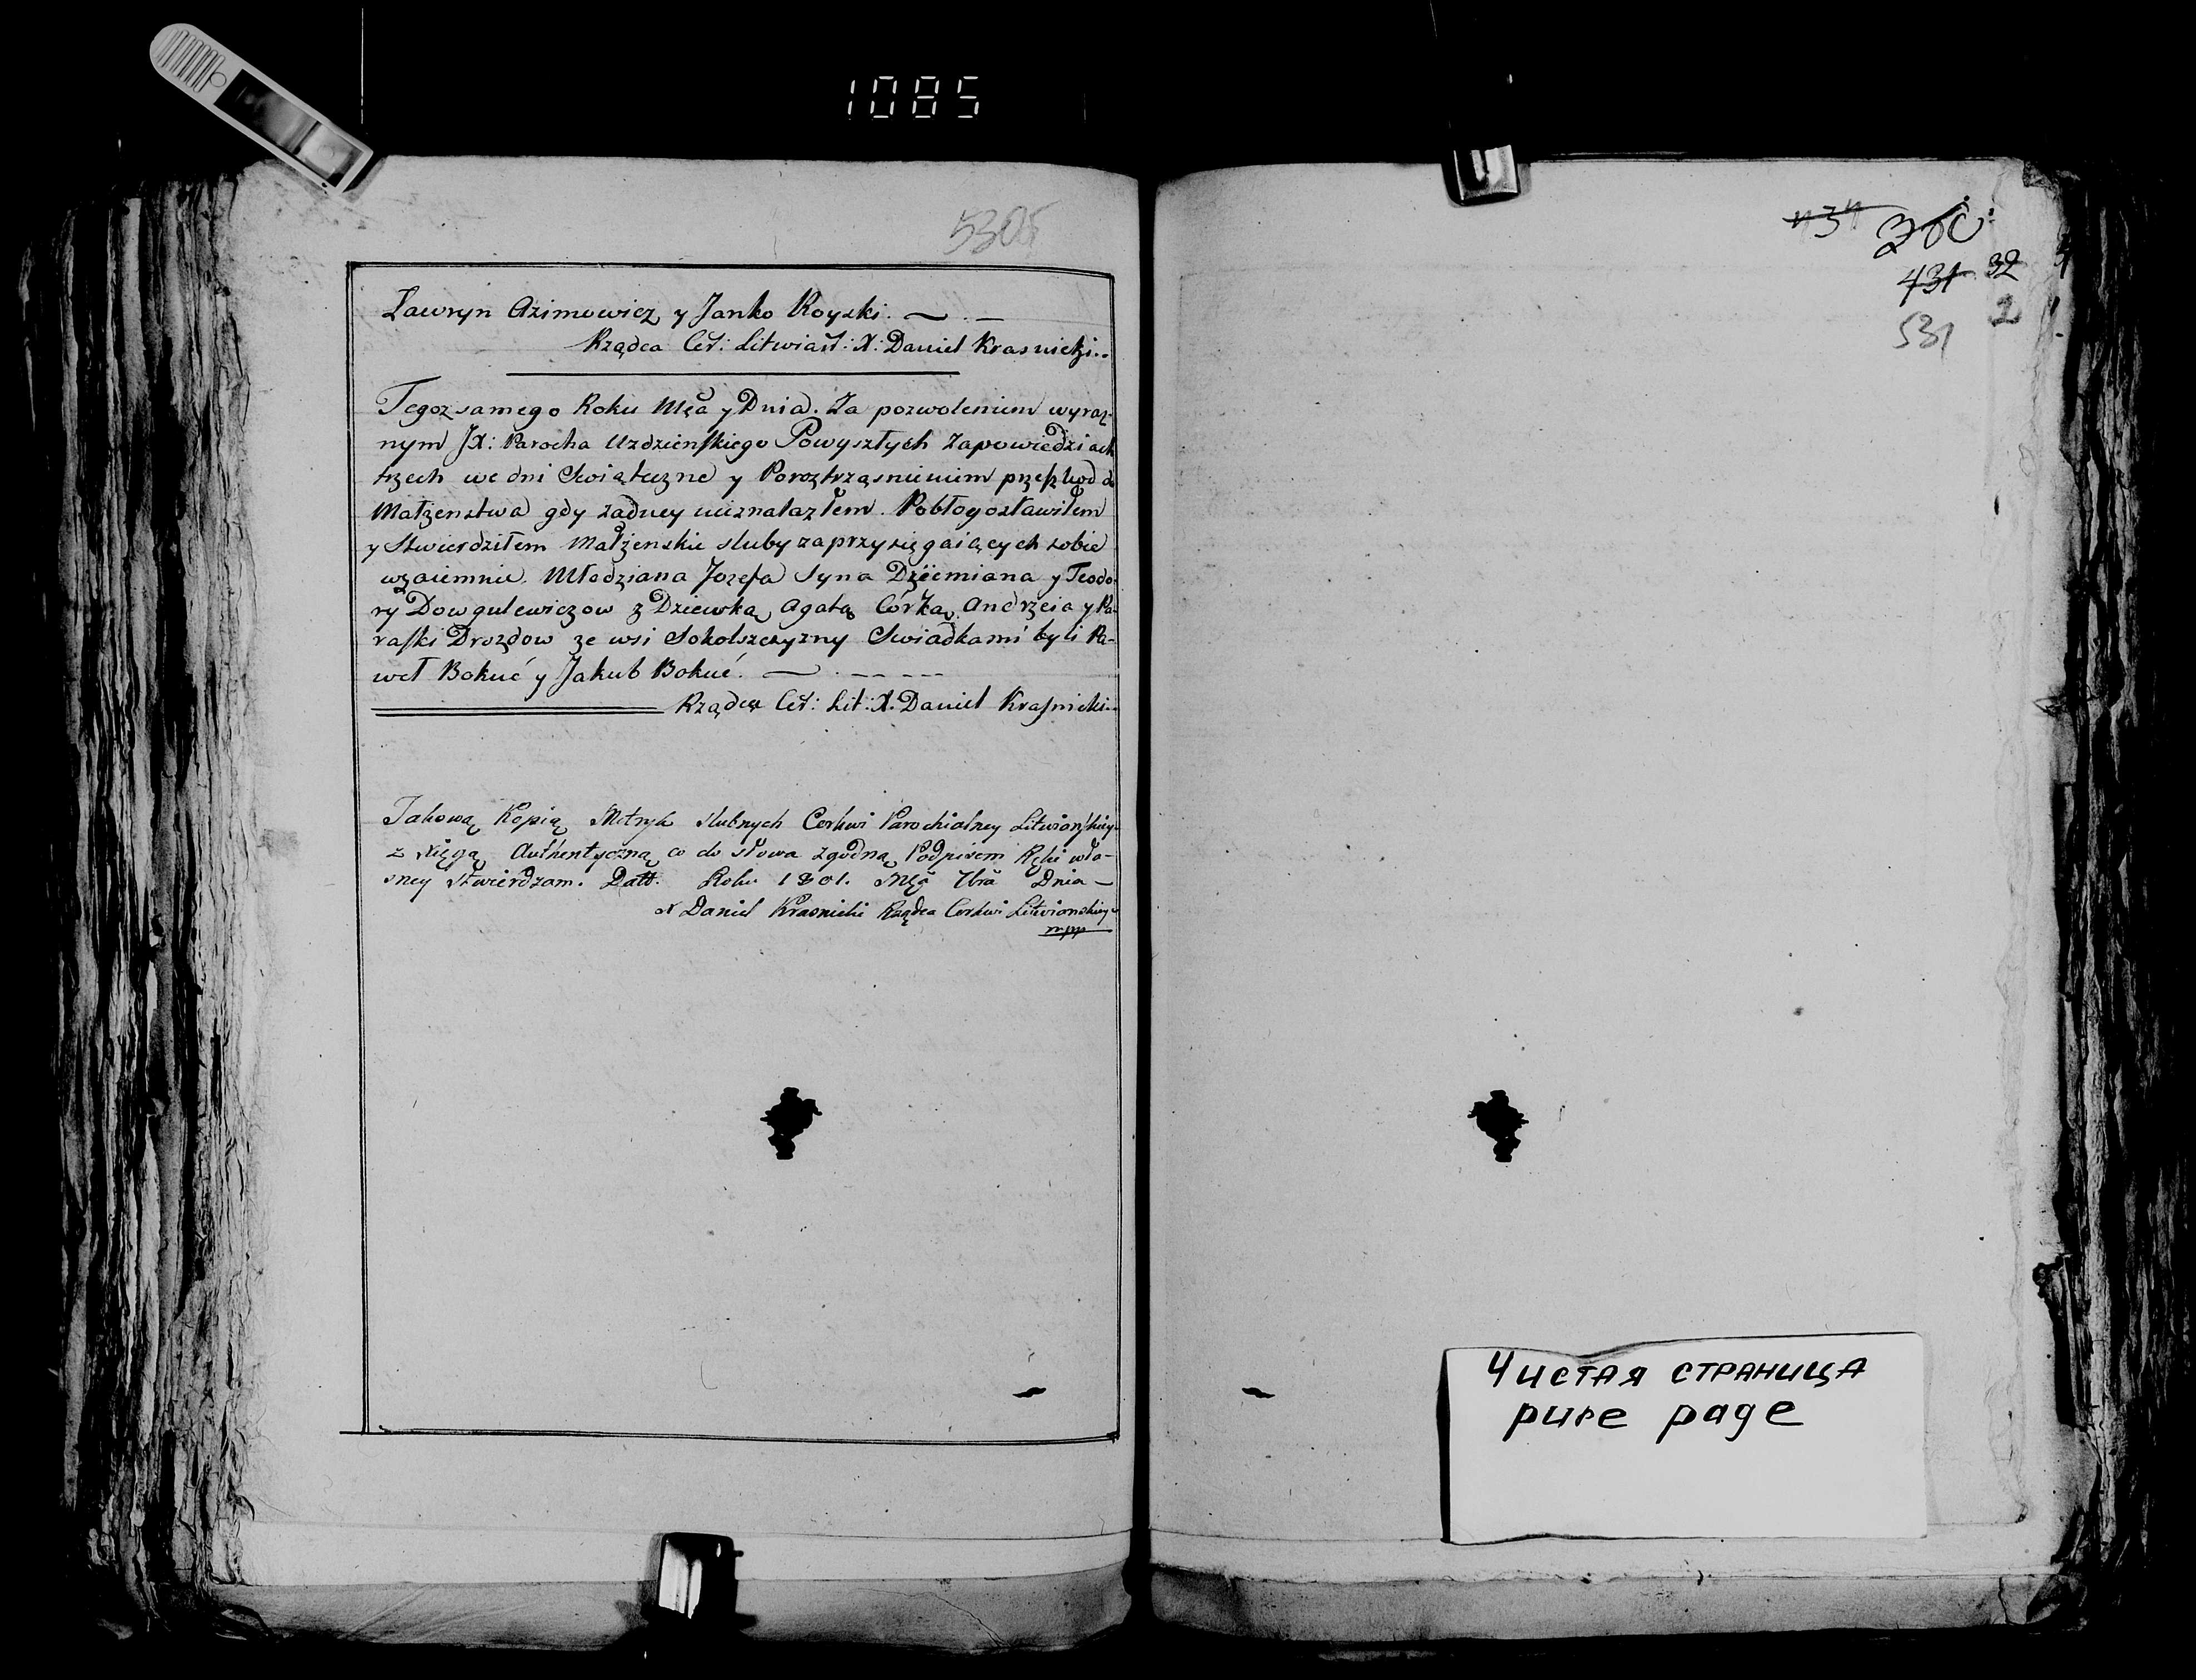 1085
530
Lawryn Azimowicz y Janko Royzki.
Rządca Cer: Litwiań: X: Daniel Krasnicki..
Tegoz samego Roku Mca y Dnia. Za pozwoleniem wyraz-
nym JX: Parocha Uzdzienskiego Powyszłych Zapowiedziach
trzech we dni Swiąteczne y Poroztrząsnieniem przeszkod do
Małzenstwa gdy zadney nieznalazłem. Pobłogosławiłem
y Stwierdziłem Małzenskie sluby zaprzysięgaiących sobie
wzaiemnie. Młodziana Jozefa Syna Dziemiana y Teodo-
ry Dowgulewiczow z Dziewką Agatą Córką Andrzeia y Pa-
raski Drozdow ze wsi Sokolszczyzny Swiadkami byli Pa-
weł Bokuć y Jakub Bokuć.
Rządca Cer: Lit: X. Daniel Krasnicki..
Takową Kopią Metryk slubnych Cerkwi Parochialney Litwianskiey
z Xięgą Authentyczną co do słowa zgodną Podpisem Ręki wła-
sney stwierdzam. Datt. Roku 1801. Mca 7bra Dnia —
X Daniel Krasnicki Rządca Cerkwi Litwianskiey
mpp
431 32
531 2
Чистая страница
pure page